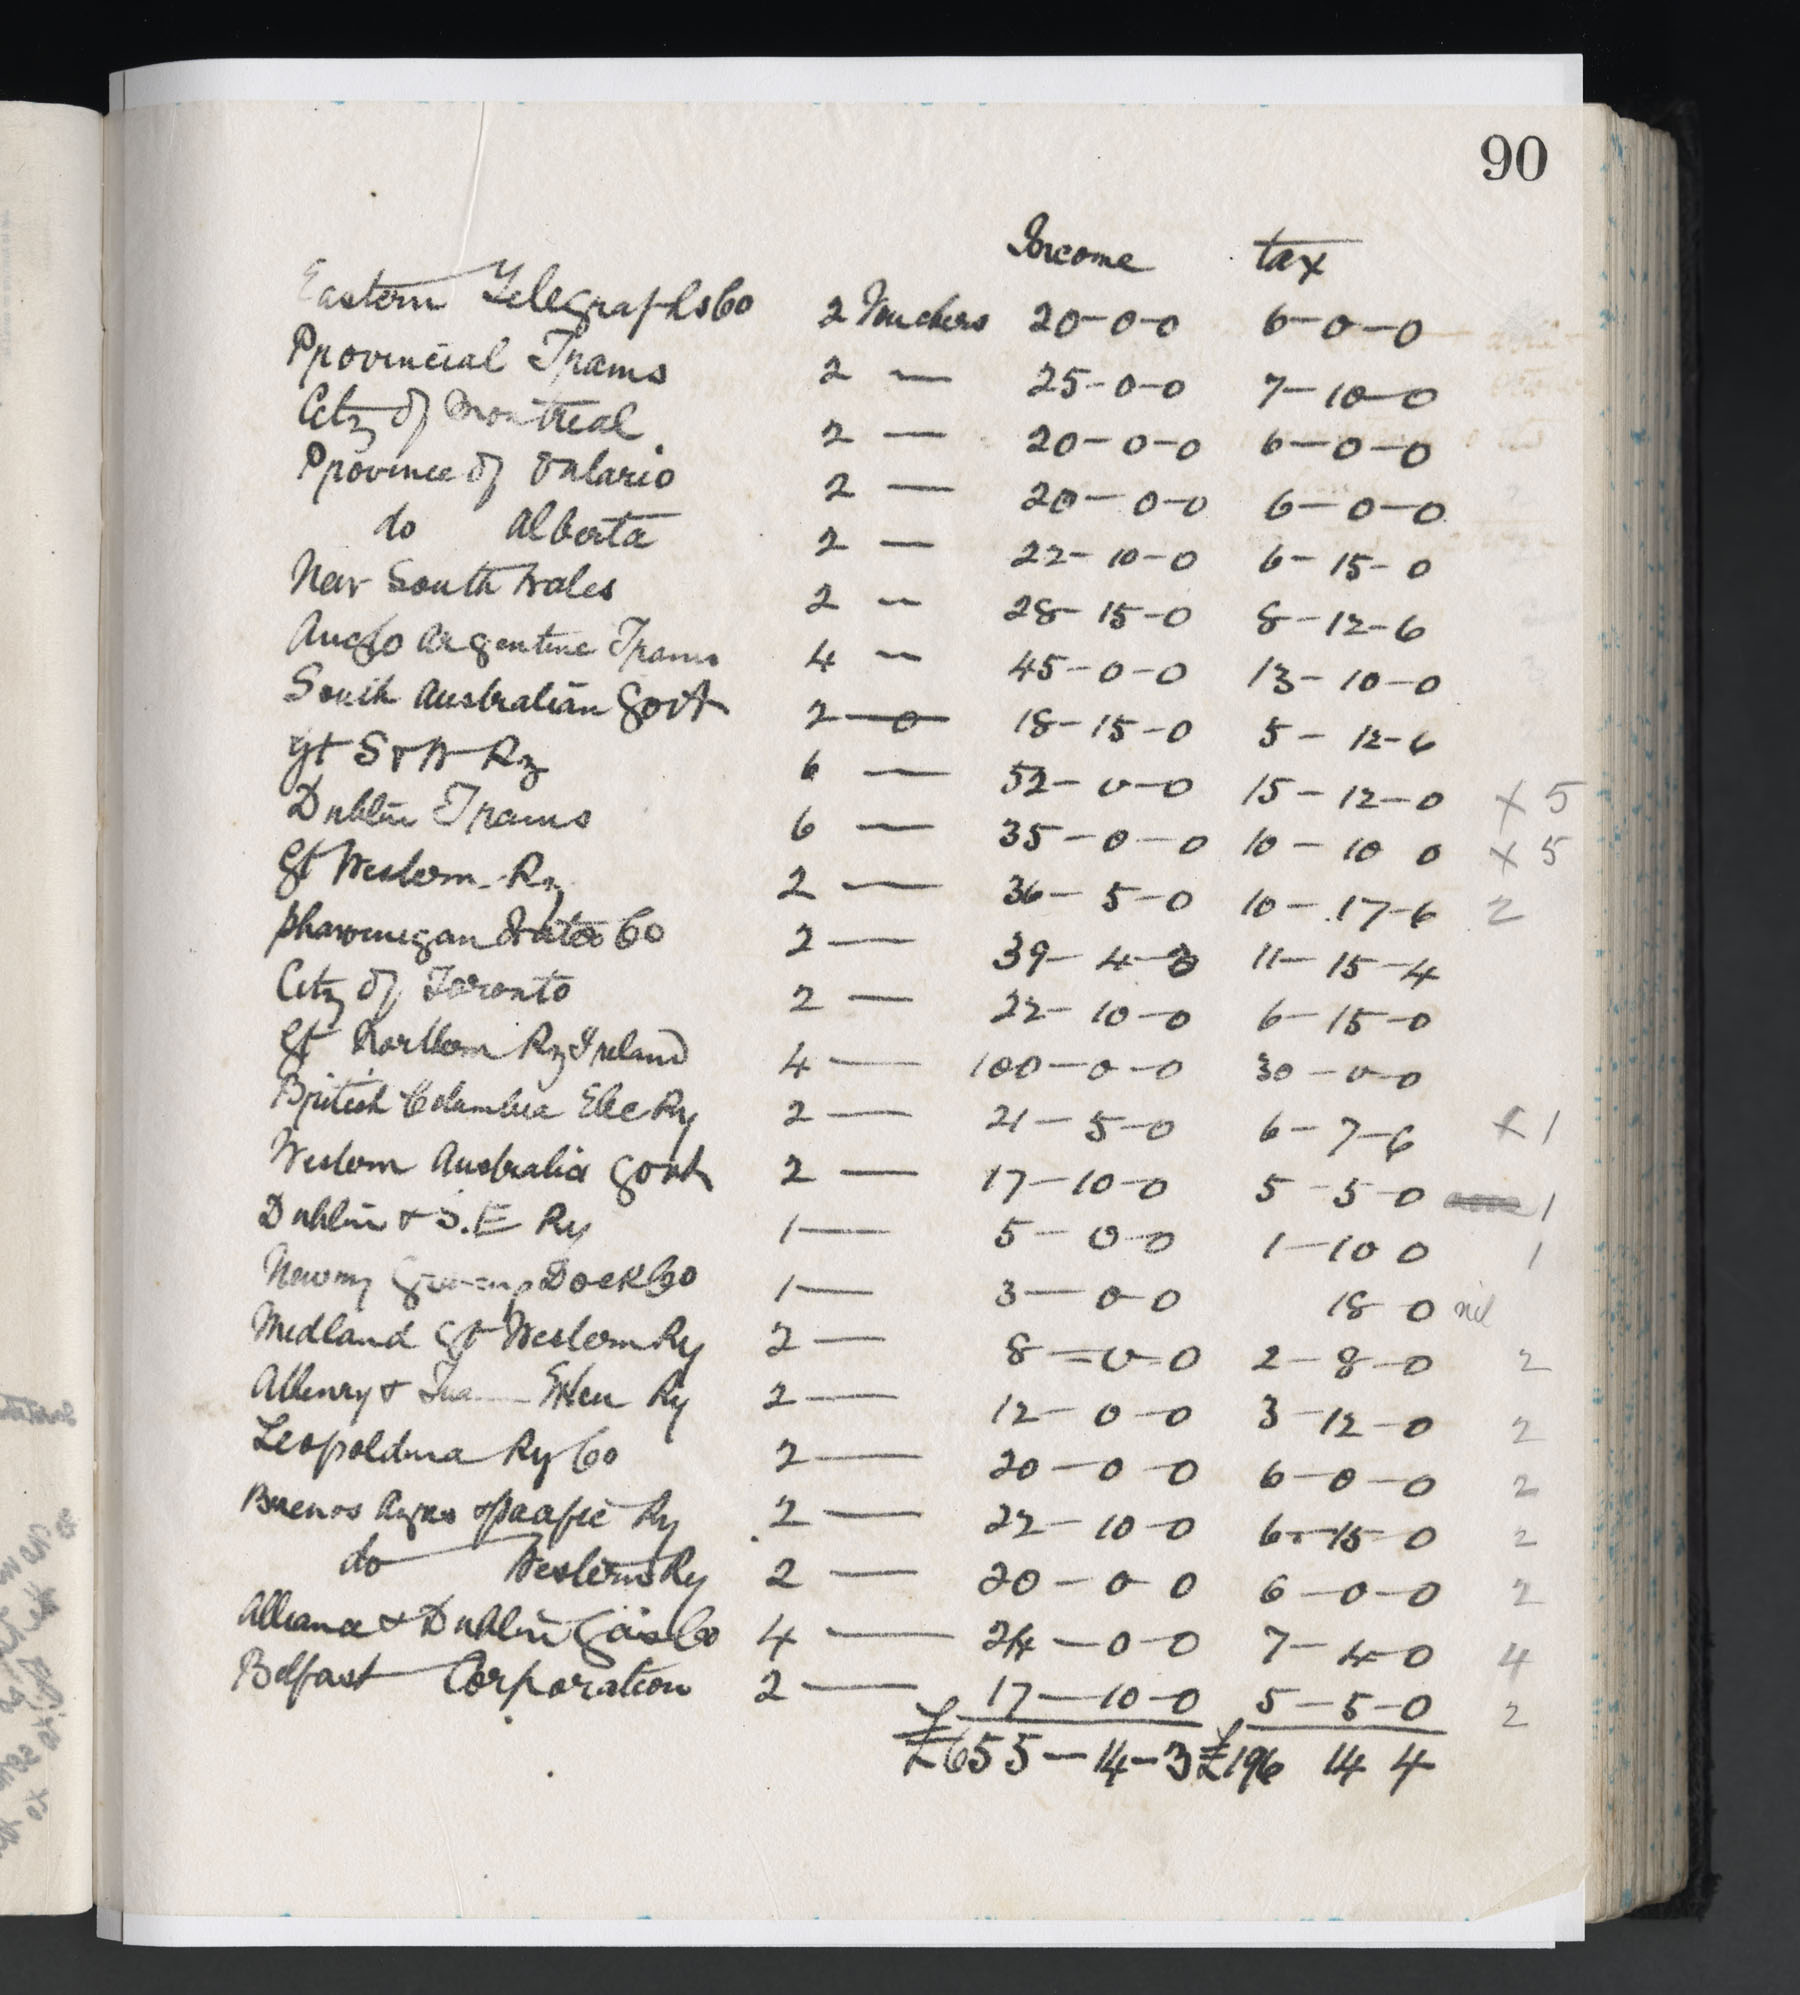 90
Income tax
Eastern Telegraphs Co 2 Vouchers 20-0-0 6-0-0
Provincial Trams 2 — 25-0-0 7-10-0
City of Montreal 2 — 20-0-0 6-0-0
Province of Ontario 2 — 20-0-0 6-0-0
do Alberta 2 — 22-10-0 6-15-0
New South Wales 2 — 28-15-0 8-12-6
Anglo Argentine Trams 4 — 45-0-0 13-10-0
South Australian Govt 2 — 18-15-0 5-12-6
Gt S & W Ry 6 — 52-0-0 15-12-0 x 5
Dublin Trams 6 — 35-0-0 10-10 0 x 5
Gt Western Ry 2 — 36-5-0 10-17-6 2
Shawinigan Water Co 2 — 39-4-3 11-15-4
City of Toronto 2 — 22-10-0 6-15-0
Gt Northern Ry Ireland 4 — 100-0-0 30-0-0
British Columbia Elec Ry 2 — 21-5-0 6-7-6 x 1
Western Australia Govt 2 — 17-10-0 5-5-0 1
Dublin & S.E Ry 1 — 5-0-0 1-10 0 1
Newry Dock Co 1 — 3-0-0 18 0 nil
Midland Gt Western Ry 2 — 8-0-0 2-8-0 2
Athenry & Exten Ry 2 — 12-0-0 3-12-0 2
Leopoldina Ry Co 2 — 20-0-0 6-0-0 2
Buenos Ayres & Pacific Ry 2 — 22-10-0 6-15-0 2
do Western Ry 2 — 20-0 0 6-0-0 2
Alliance & Dublin Gas Co 4 — 24-0-0 7-4-0 4
Belfast Corporation 2 — 17-10-0 5-5-0 2
£655-14-3 £196 14 4